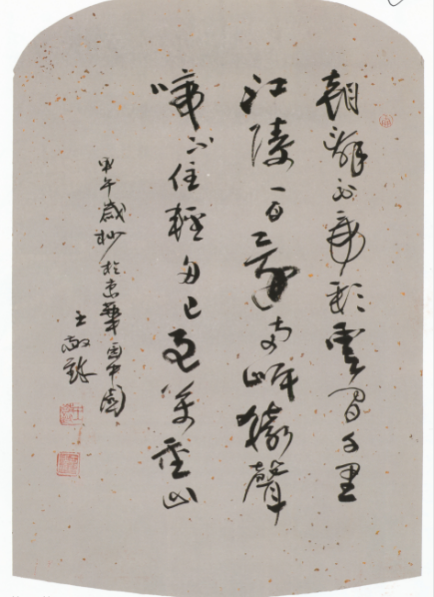 朝辭白帝彩雲間千里
江陵一日還兩岸猿聲
啼不住輕舟已過萬重山
甲午歲杪於京華西中園
王敬